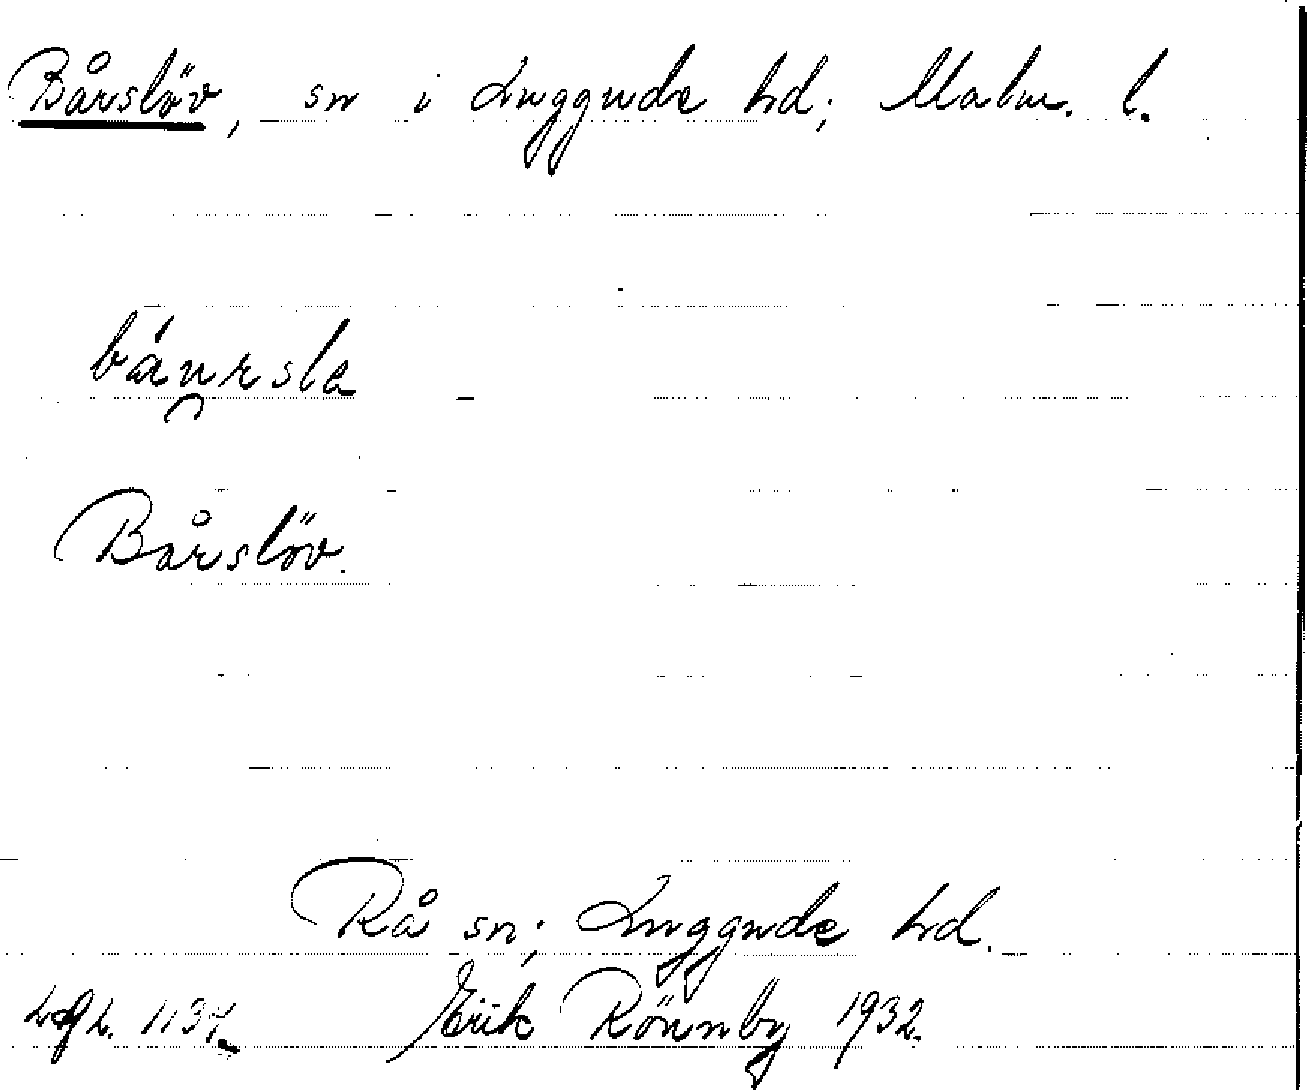 Bårslöv, sn i Luggude hd; Malm. l.
báursla
Bårslöv.
Rå sn; Luggude hd.
Erik Rönnby 1932.